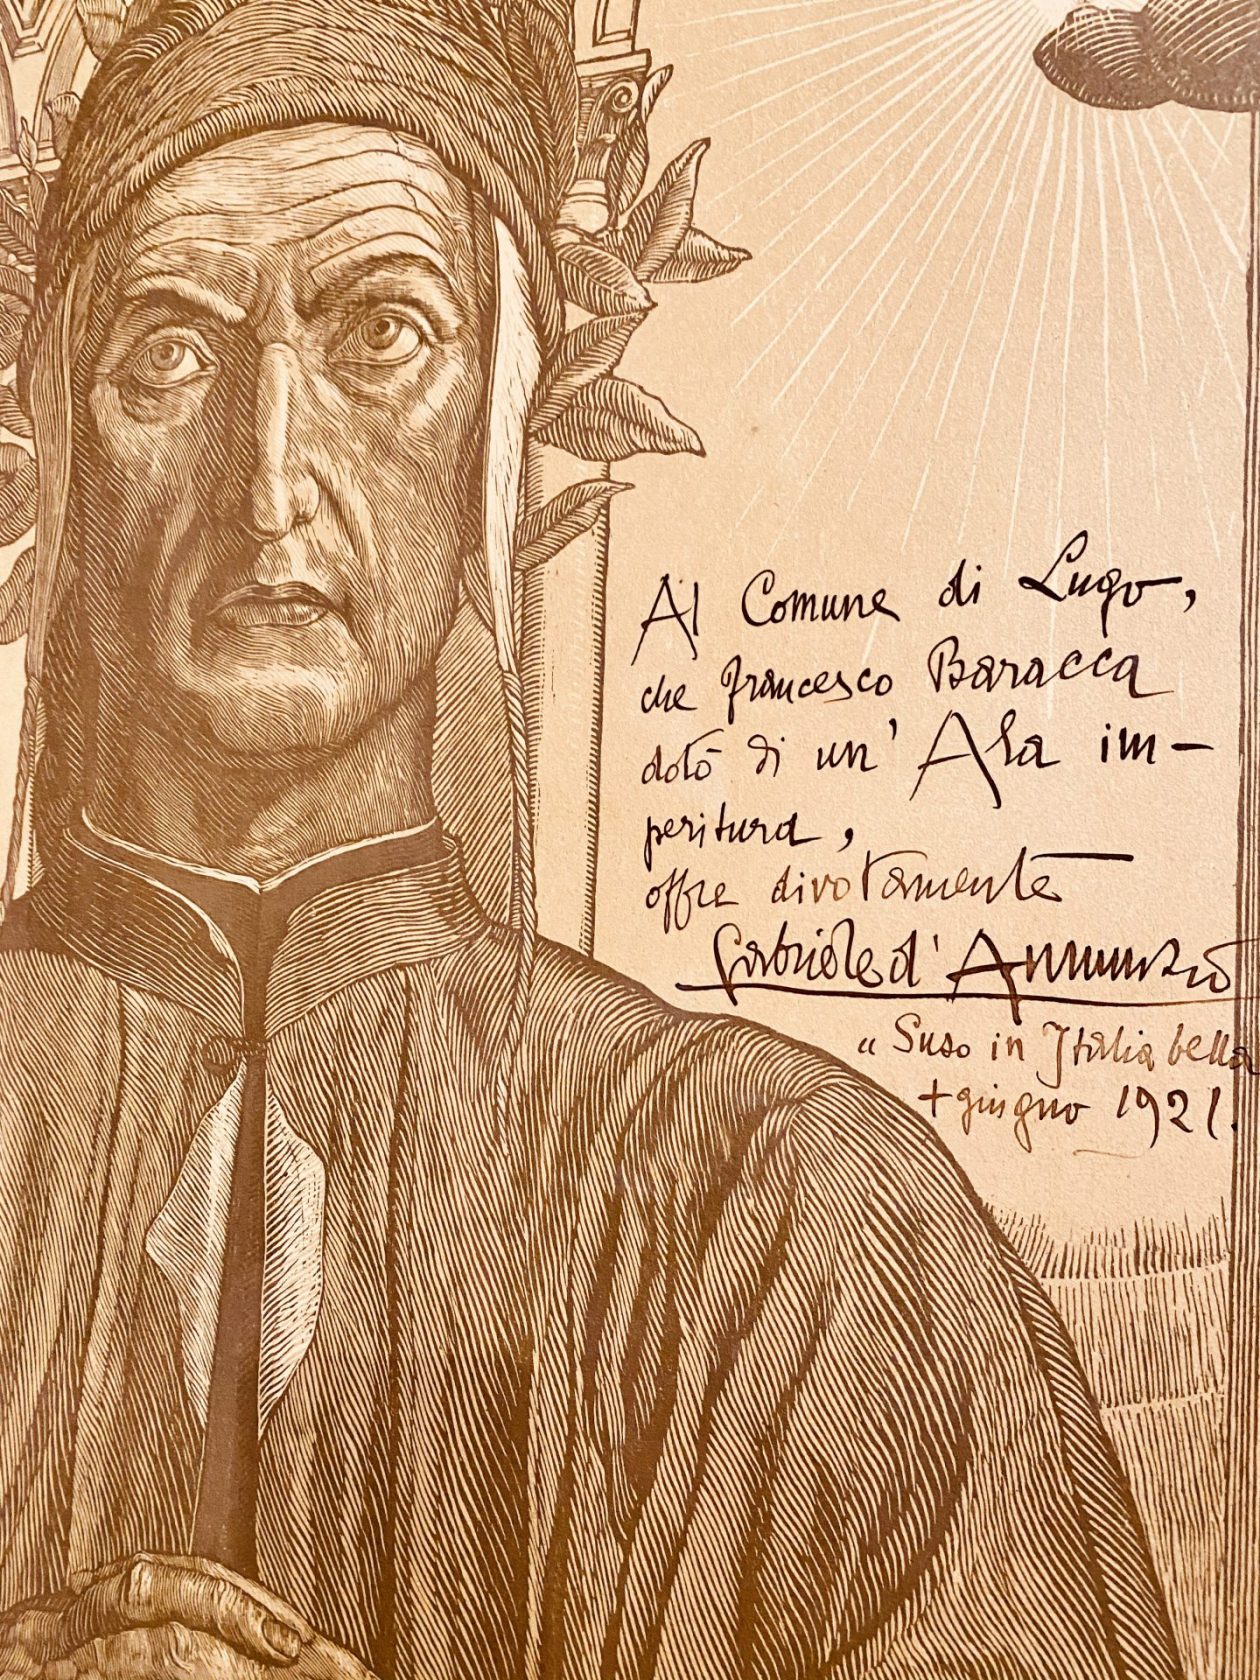 Al Comune di Lugo,
che Francesco Baracca
dotò di un' Ala im-
peritura,
offre divotamente
Gabriele d'Annunzio
" Suso in Italia bella
+ giugno 1921.